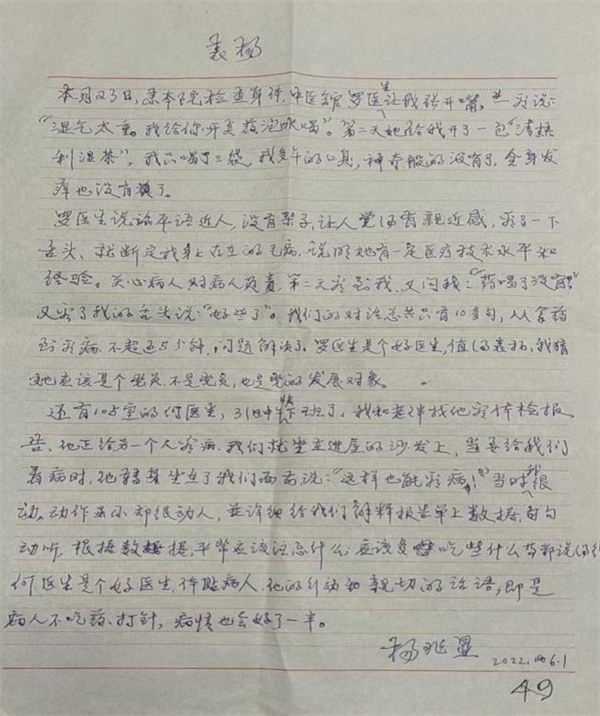 表扬
本月23日,来本院检查身体,中医馆罗医生让我张开嘴,一看说:
“湿气太重。我给你开点药泡水喝”。第二天她给我开了一包“清热
利湿茶”,我只喝了三袋,我多年的口臭,神奇般的没有了,全身发
痒也没有痒了。
罗医生说话平语近人,没有架子,让人觉得有亲近感,看了一下
舌头、就断定我身上存在的毛病,说明她有一定医疗技术水平和
经验。关心病人对病人负责,第二天看到我,又问我:“药喝了没有?”
又看了我的舌头说:“好些了”。我们的对话总共只有10多句,从拿药
到看病,不超过5分钟,问题解决了。罗医生是个好医生,值得表扬,我猜
她应该是个党员,不是党员,也是党的发展对象。
还有105室的何医生,31日中午下班了,我和老伴找他看体检报
告、他正给另一个人看病,我们就坐在进屋的沙发上,当要给我们
看病时,他 坐在了我们面前说:“这样也能看病!”当时我很
动。动作虽小却很动人,并详细给我们解释报告单上数据,句句
动听,根据数据,平常应该注意什么,应该多吃些什么等都说得
何医生是个好医生,体贴病人,他的行动和亲切的话语,即是
病人不吃药、打针,病情也会好了一半。
杨 显 2022.6.1
49